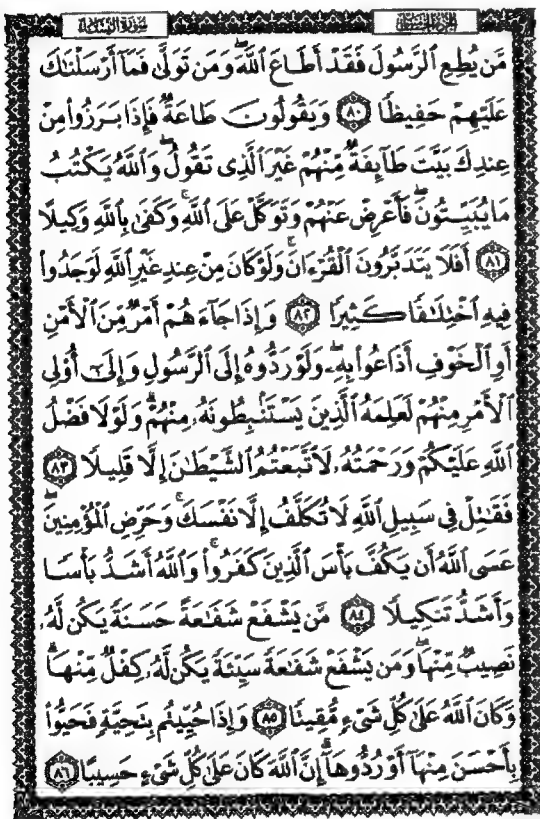 سورة النساء
الجزء الخامس
مَّن يُطِعِ ٱلرَّسُولَ فَقَدْ أَطَاعَ ٱللَّهَۖ وَمَن تَوَلَّىٰ فَمَآ أَرْسَلْنَٰكَ
عَلَيْهِمْ حَفِيظًا ﴿٨٠﴾ وَيَقُولُونَ طَاعَةٌ فَإِذَا بَرَزُوا۟ مِنْ
عِندِكَ بَيَّتَ طَآئِفَةٌ مِّنْهُمْ غَيْرَ ٱلَّذِى تَقُولُۖ وَٱللَّهُ يَكْتُبُ
مَا يُبَيِّتُونَۖ فَأَعْرِضْ عَنْهُمْ وَتَوَكَّلْ عَلَى ٱللَّهِۚ وَكَفَىٰ بِٱللَّهِ وَكِيلًا
﴿٨١﴾ أَفَلَا يَتَدَبَّرُونَ ٱلْقُرْءَانَۚ وَلَوْ كَانَ مِنْ عِندِ غَيْرِ ٱللَّهِ لَوَجَدُوا۟
فِيهِ ٱخْتِلَٰفًا كَثِيرًا ﴿٨٢﴾ وَإِذَا جَآءَهُمْ أَمْرٌ مِّنَ ٱلْأَمْنِ
أَوِ ٱلْخَوْفِ أَذَاعُوا۟ بِهِۦۖ وَلَوْ رَدُّوهُ إِلَى ٱلرَّسُولِ وَإِلَىٰٓ أُو۟لِى
ٱلْأَمْرِ مِنْهُمْ لَعَلِمَهُ ٱلَّذِينَ يَسْتَنۢبِطُونَهُۥ مِنْهُمْۗ وَلَوْلَا فَضْلُ
ٱللَّهِ عَلَيْكُمْ وَرَحْمَتُهُۥ لَٱتَّبَعْتُمُ ٱلشَّيْطَٰنَ إِلَّا قَلِيلًا ﴿٨٣﴾
فَقَٰتِلْ فِى سَبِيلِ ٱللَّهِ لَا تُكَلَّفُ إِلَّا نَفْسَكَۚ وَحَرِّضِ ٱلْمُؤْمِنِينَۖ
عَسَى ٱللَّهُ أَن يَكُفَّ بَأْسَ ٱلَّذِينَ كَفَرُوا۟ۚ وَٱللَّهُ أَشَدُّ بَأْسًا
وَأَشَدُّ تَنكِيلًا ﴿٨٤﴾ مَّن يَشْفَعْ شَفَٰعَةً حَسَنَةً يَكُن لَّهُۥ
نَصِيبٌ مِّنْهَاۖ وَمَن يَشْفَعْ شَفَٰعَةً سَيِّئَةً يَكُن لَّهُۥ كِفْلٌ مِّنْهَاۗ
وَكَانَ ٱللَّهُ عَلَىٰ كُلِّ شَىْءٍ مُّقِيتًا ﴿٨٥﴾ وَإِذَا حُيِّيتُم بِتَحِيَّةٍ فَحَيُّوا۟
بِأَحْسَنَ مِنْهَآ أَوْ رُدُّوهَآۗ إِنَّ ٱللَّهَ كَانَ عَلَىٰ كُلِّ شَىْءٍ حَسِيبًا ﴿٨٦﴾